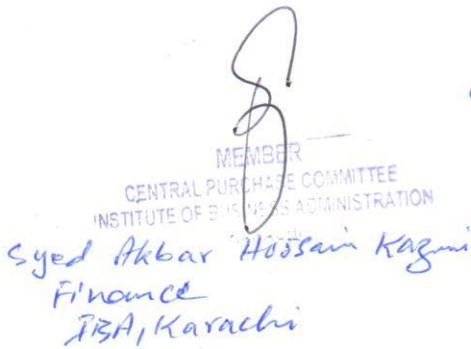 MEMBER
CENTRAL PURCHASE COMMITTEE
INSTITUTE OF BUSINESS ADMINISTRATION
Syed Akbar Hussain Kazmi
Finance
IBA, Karachi